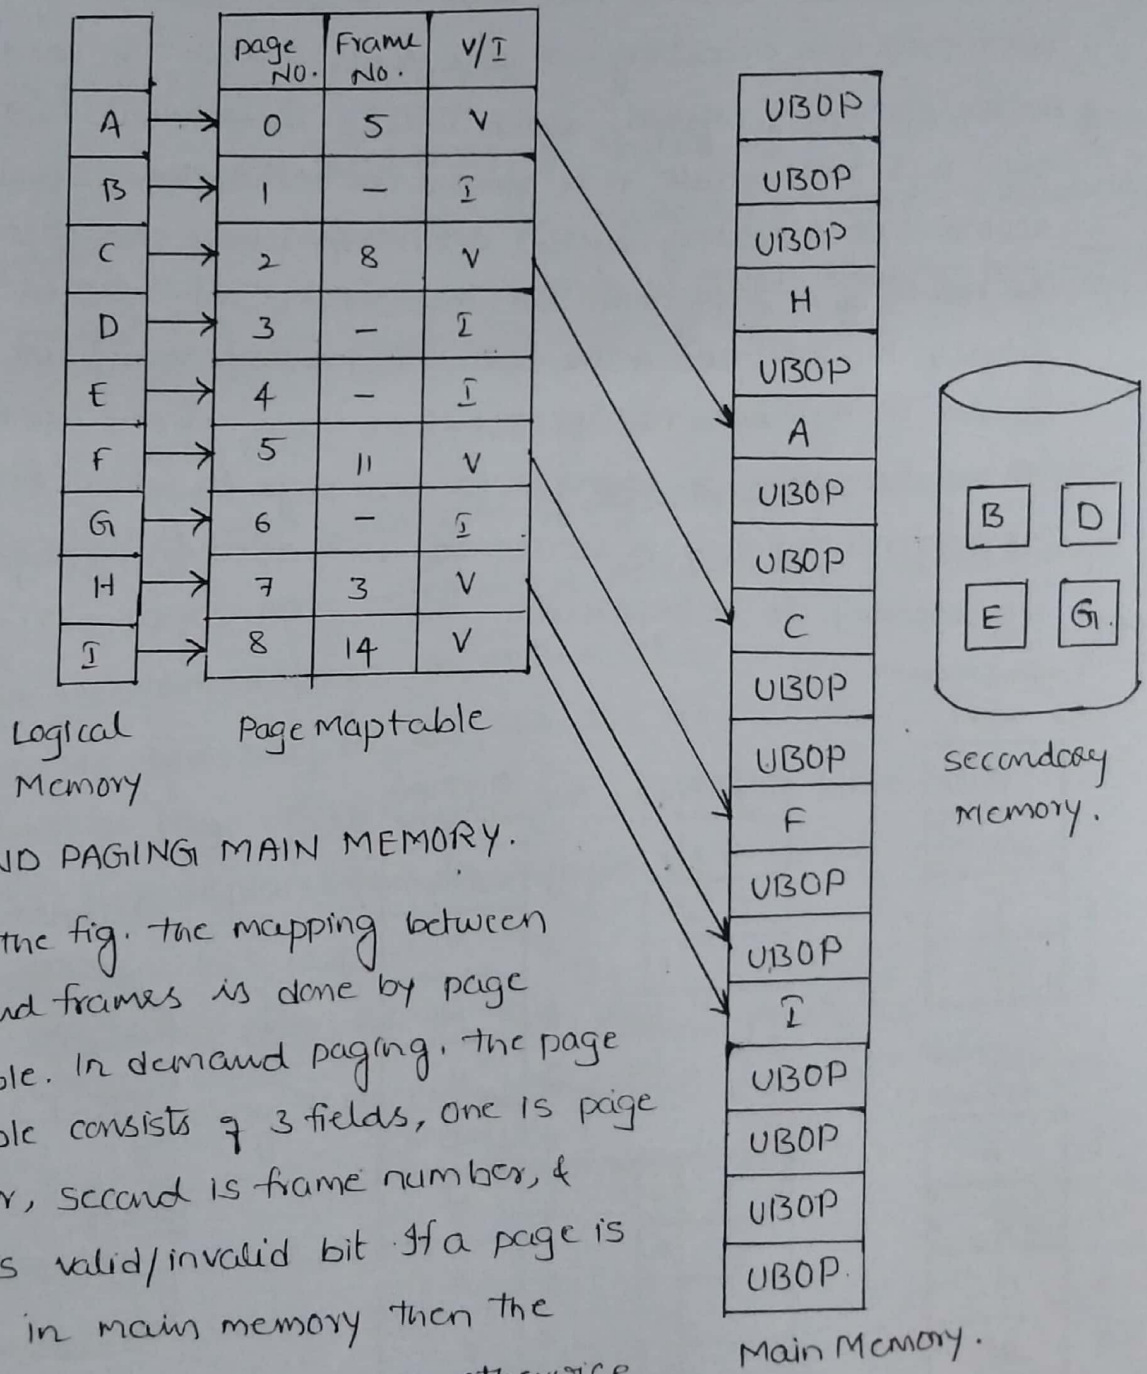 Page No. Frame No. V/I
A 0 5 V
B 1 – I
C 2 8 V
D 3 – I
E 4 – I
F 5 11 V
G 6 – I
H 7 3 V
I 8 14 V
Logical Memory
Page Maptable
UBOP
UBOP
UBOP
H
UBOP
A
UBOP
UBOP
C
UBOP
UBOP
F
UBOP
UBOP
I
UBOP
UBOP
UBOP
UBOP.
Main Memory.
B D
E G.
Secondary Memory.
PAGING MAIN MEMORY.
the fig. the mapping between
frames is done by page
In demand paging, the page
consists of 3 fields, one is page
second is frame number, &
valid/invalid bit. If a page is
in main memory then the